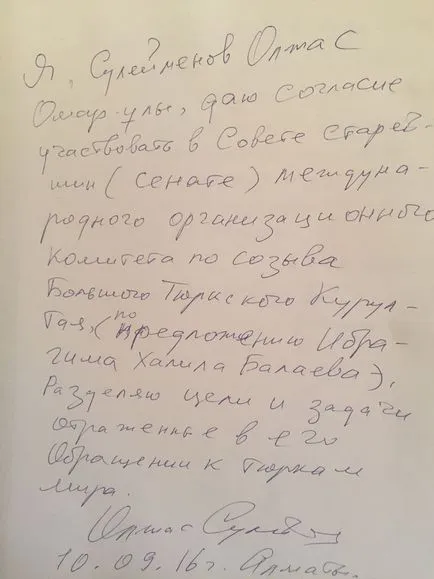 Я, Сулейменов Олжас
Омар-улы, даю согласие
участвовать в Совете старей-
шин (сенате) междуна-
родного организационного
комитета по созыва
Большого Тюркского Курул-
тая, (по предложению Ибра-
гима Халила Балаева),
Разделяю цели и задачи
отраженные в его
Обращении к тюркам
мира.
Олжас Сулей
10.09.16г. Алматы.